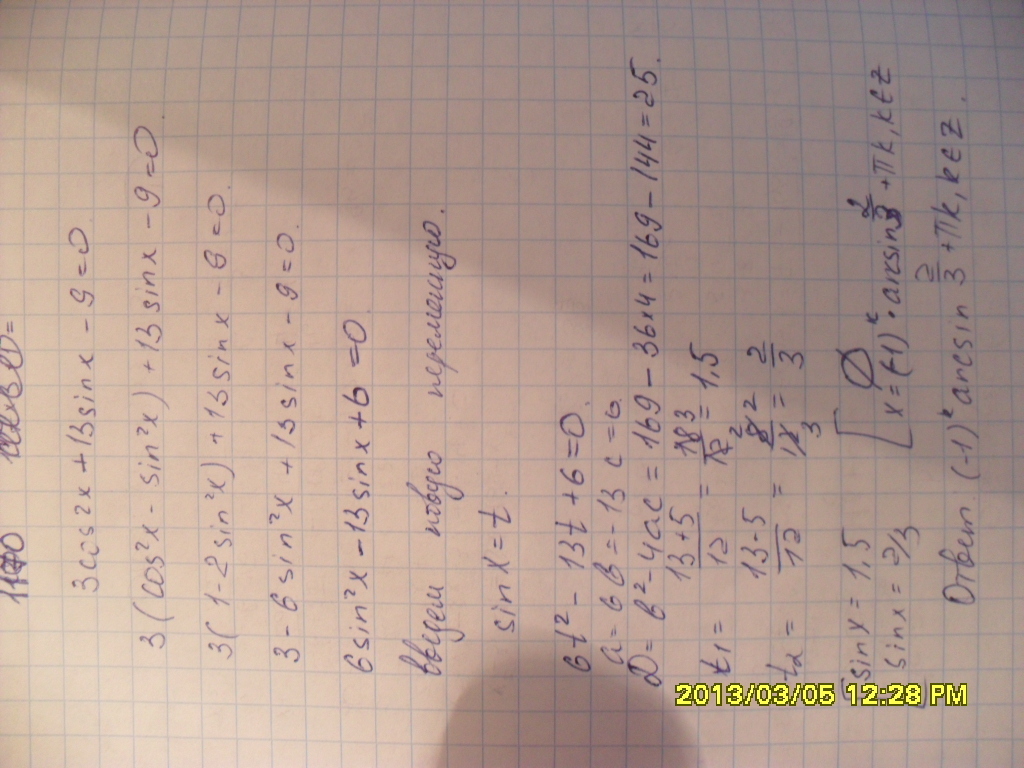 3 cos 2x + 13 sin x - 9 = 0
3 (cos²x - sin²x) + 13 sin x - 9 = 0.
3 (1 - 2 sin²x) + 13 sin x - 9 = 0.
3 - 6 sin²x + 13 sin x - 9 = 0.
6 sin²x - 13 sin x + 6 = 0.
введем новую переменную.
sin x = t.
6t² - 13t + 6 = 0.
a = 6 b = -13 c = 6.
D = b² - 4ac = 169 - 36×4 = 169 - 144 = 25.
t₁ = (13 + 5)/12 = 18/12 = 3/2 = 1,5
t₂ = (13 - 5)/12 = 8/12 = 2/3
[ sin x = 1,5 [ Ø
sin x = 2/3 x = (-1)ᵏ · arcsin 2/3 + πk, k ∈ Z
Ответ: (-1)ᵏ arcsin 2/3 + πk, k ∈ Z.
2013/03/05 12:28 PM